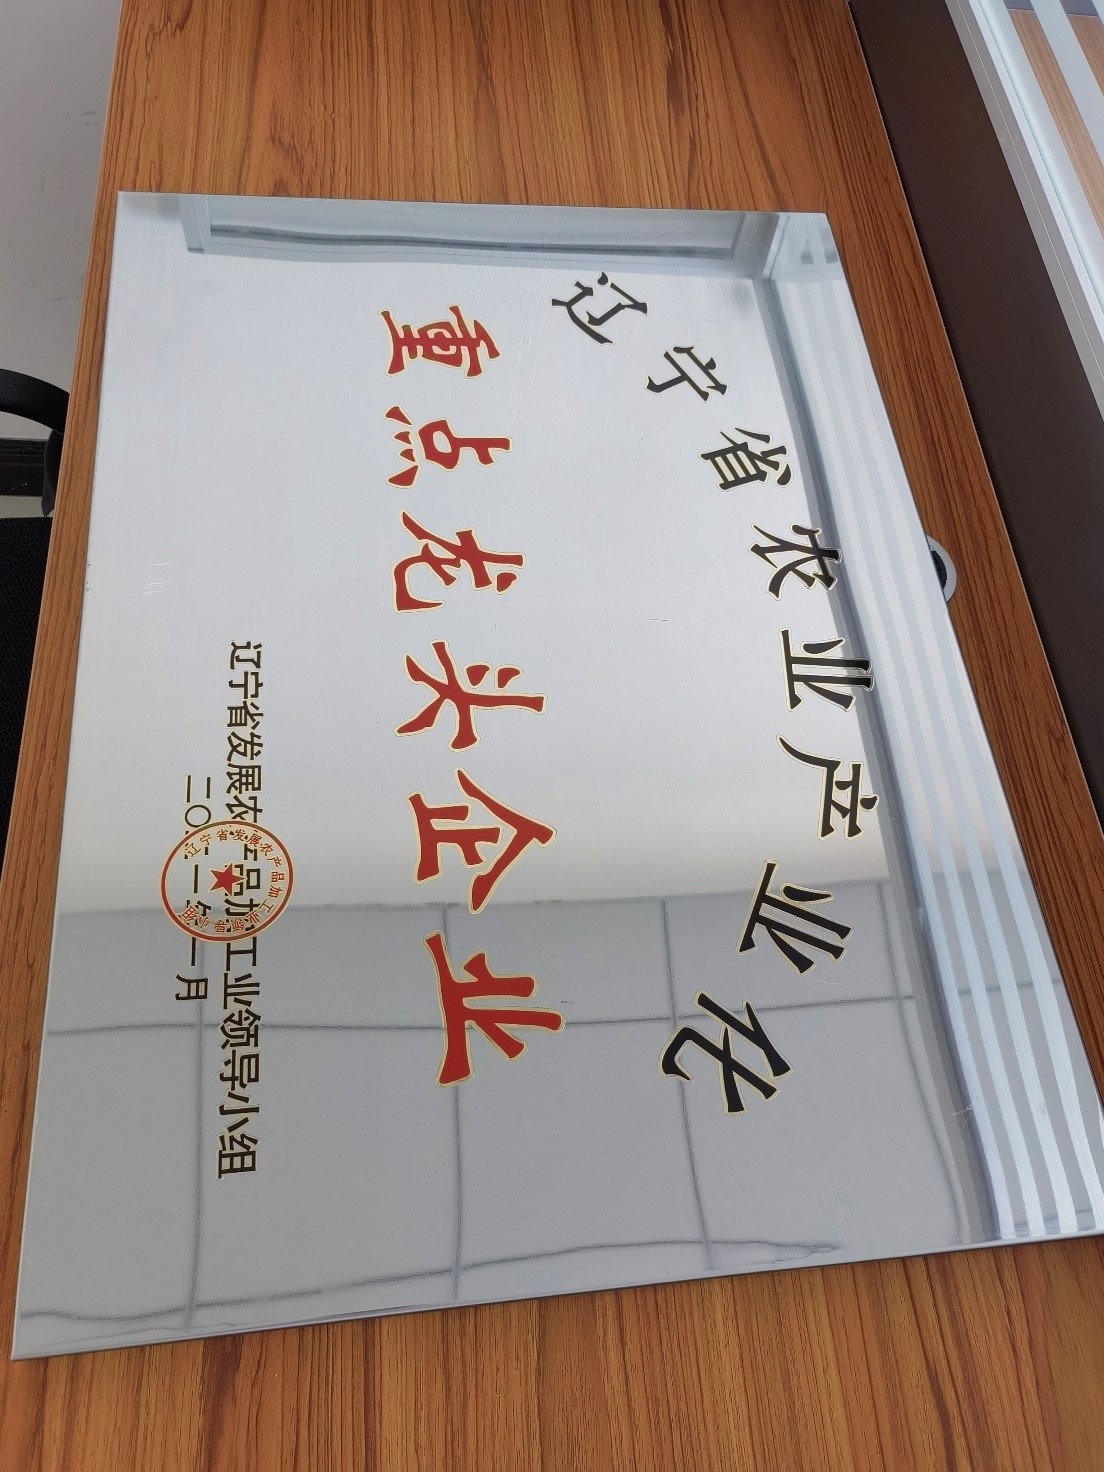 辽宁省农业产业化
重点龙头企业
辽宁省发展农产品加工业领导小组
二〇二一年一月
辽宁省发展农产品加工业领导小组